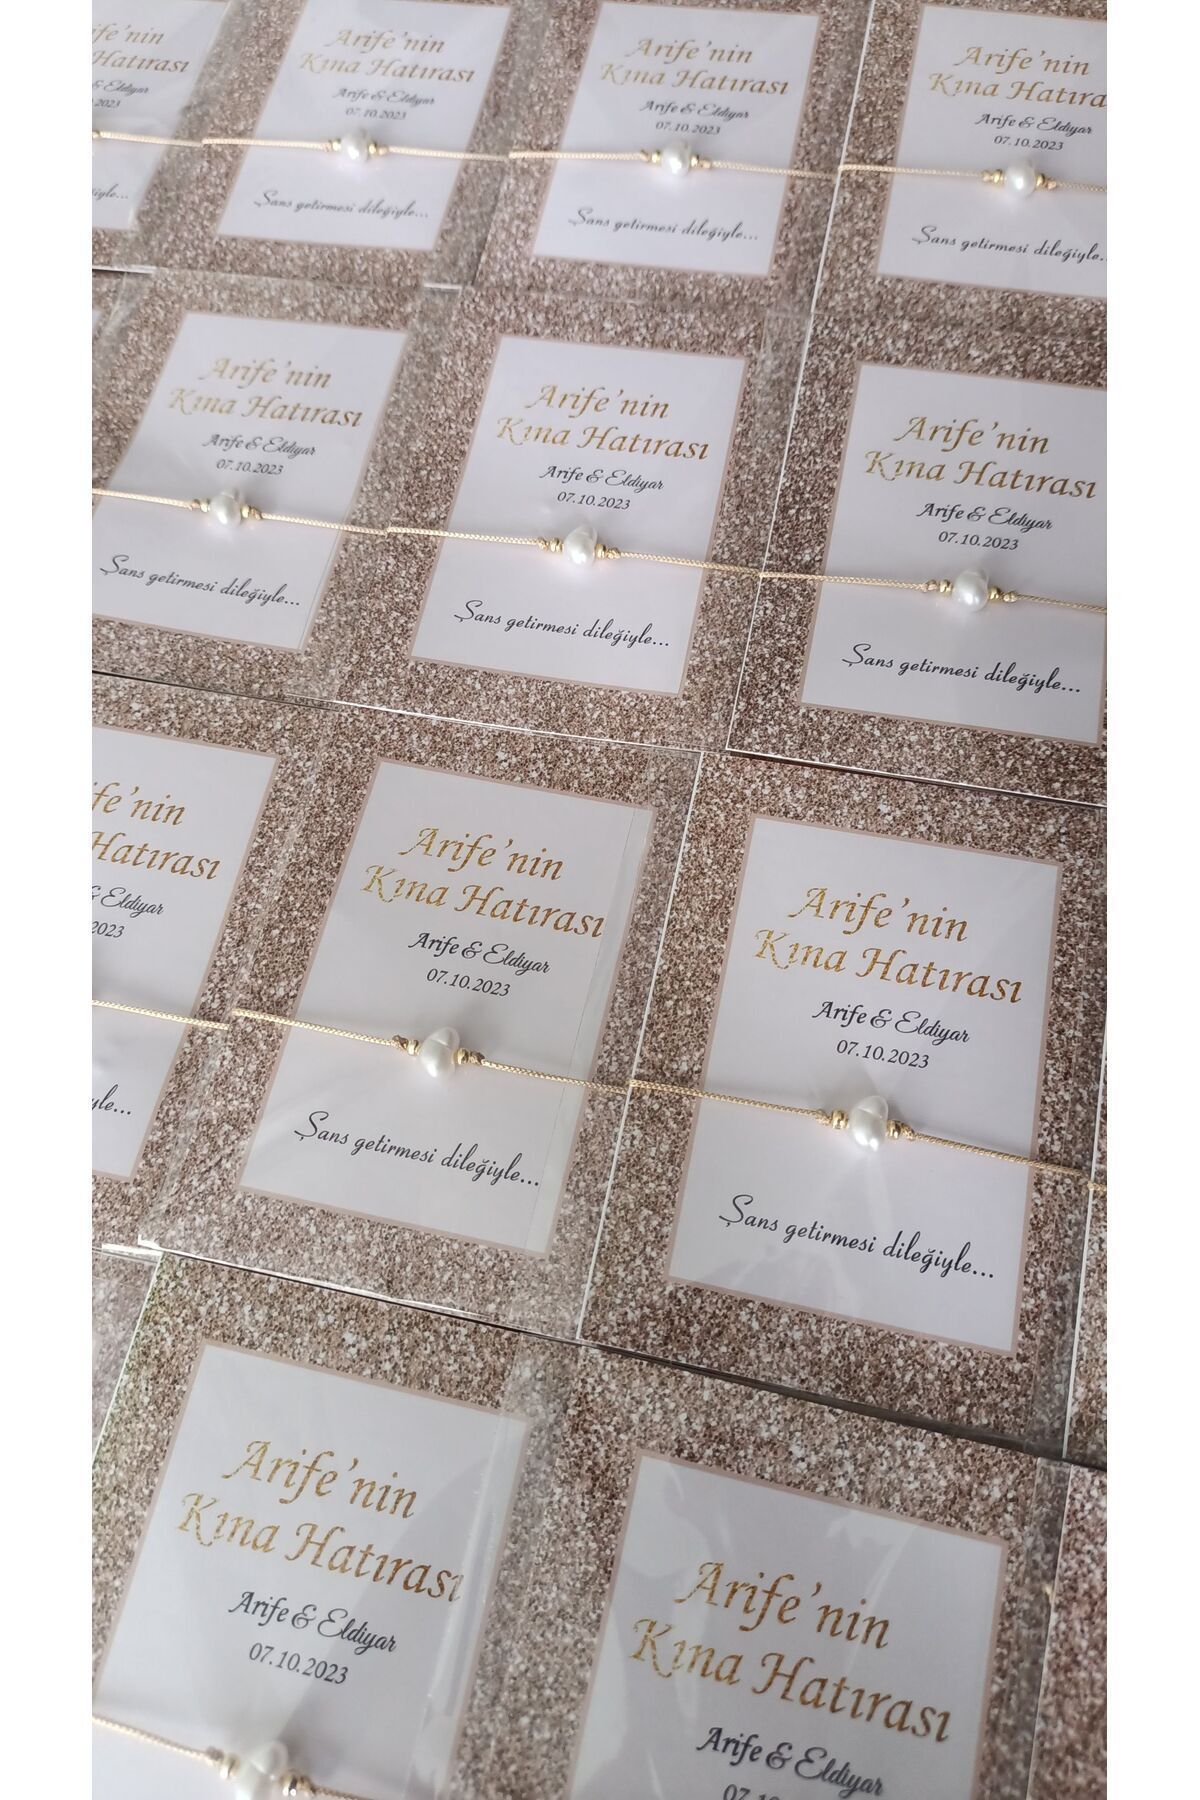 ife'nin
Hatırası
& Eldiyar
2023
iyle...
Arife'nin
Kına Hatırası
Arife & Eldiyar
07.10.2023
Şans getirmesi dileğiyle...
Arife'nin
Kına Hatırası
Arife & Eldiyar
07.10.2023
Şans getirmesi dileğiyle...
Arife'nin
Kına Hatıra
Arife & Eldiyar
07.10.2023
Şans getirmesi dileğiyle..
Arife'nin
Kına Hatırası
Arife & Eldiyar
07.10.2023
Şans getirmesi dileğiyle...
Arife'nin
Kına Hatırası
Arife & Eldiyar
07.10.2023
Şans getirmesi dileğiyle...
Arife'nin
Kına Hatırası
Arife & Eldiyar
07.10.2023
Şans getirmesi dileğiyle...
ife'nin
Hatırası
& Eldiyar
2023
yle...
Arife'nin
Kına Hatırası
Arife & Eldiyar
07.10.2023
Şans getirmesi dileğiyle...
Arife'nin
Kına Hatırası
Arife & Eldiyar
07.10.2023
Şans getirmesi dileğiyle...
Arife'nin
Kına Hatırası
Arife & Eldiyar
07.10.2023
Arife'nin
Kına Hatırası
Arife & Eldiyar
07.10.2023